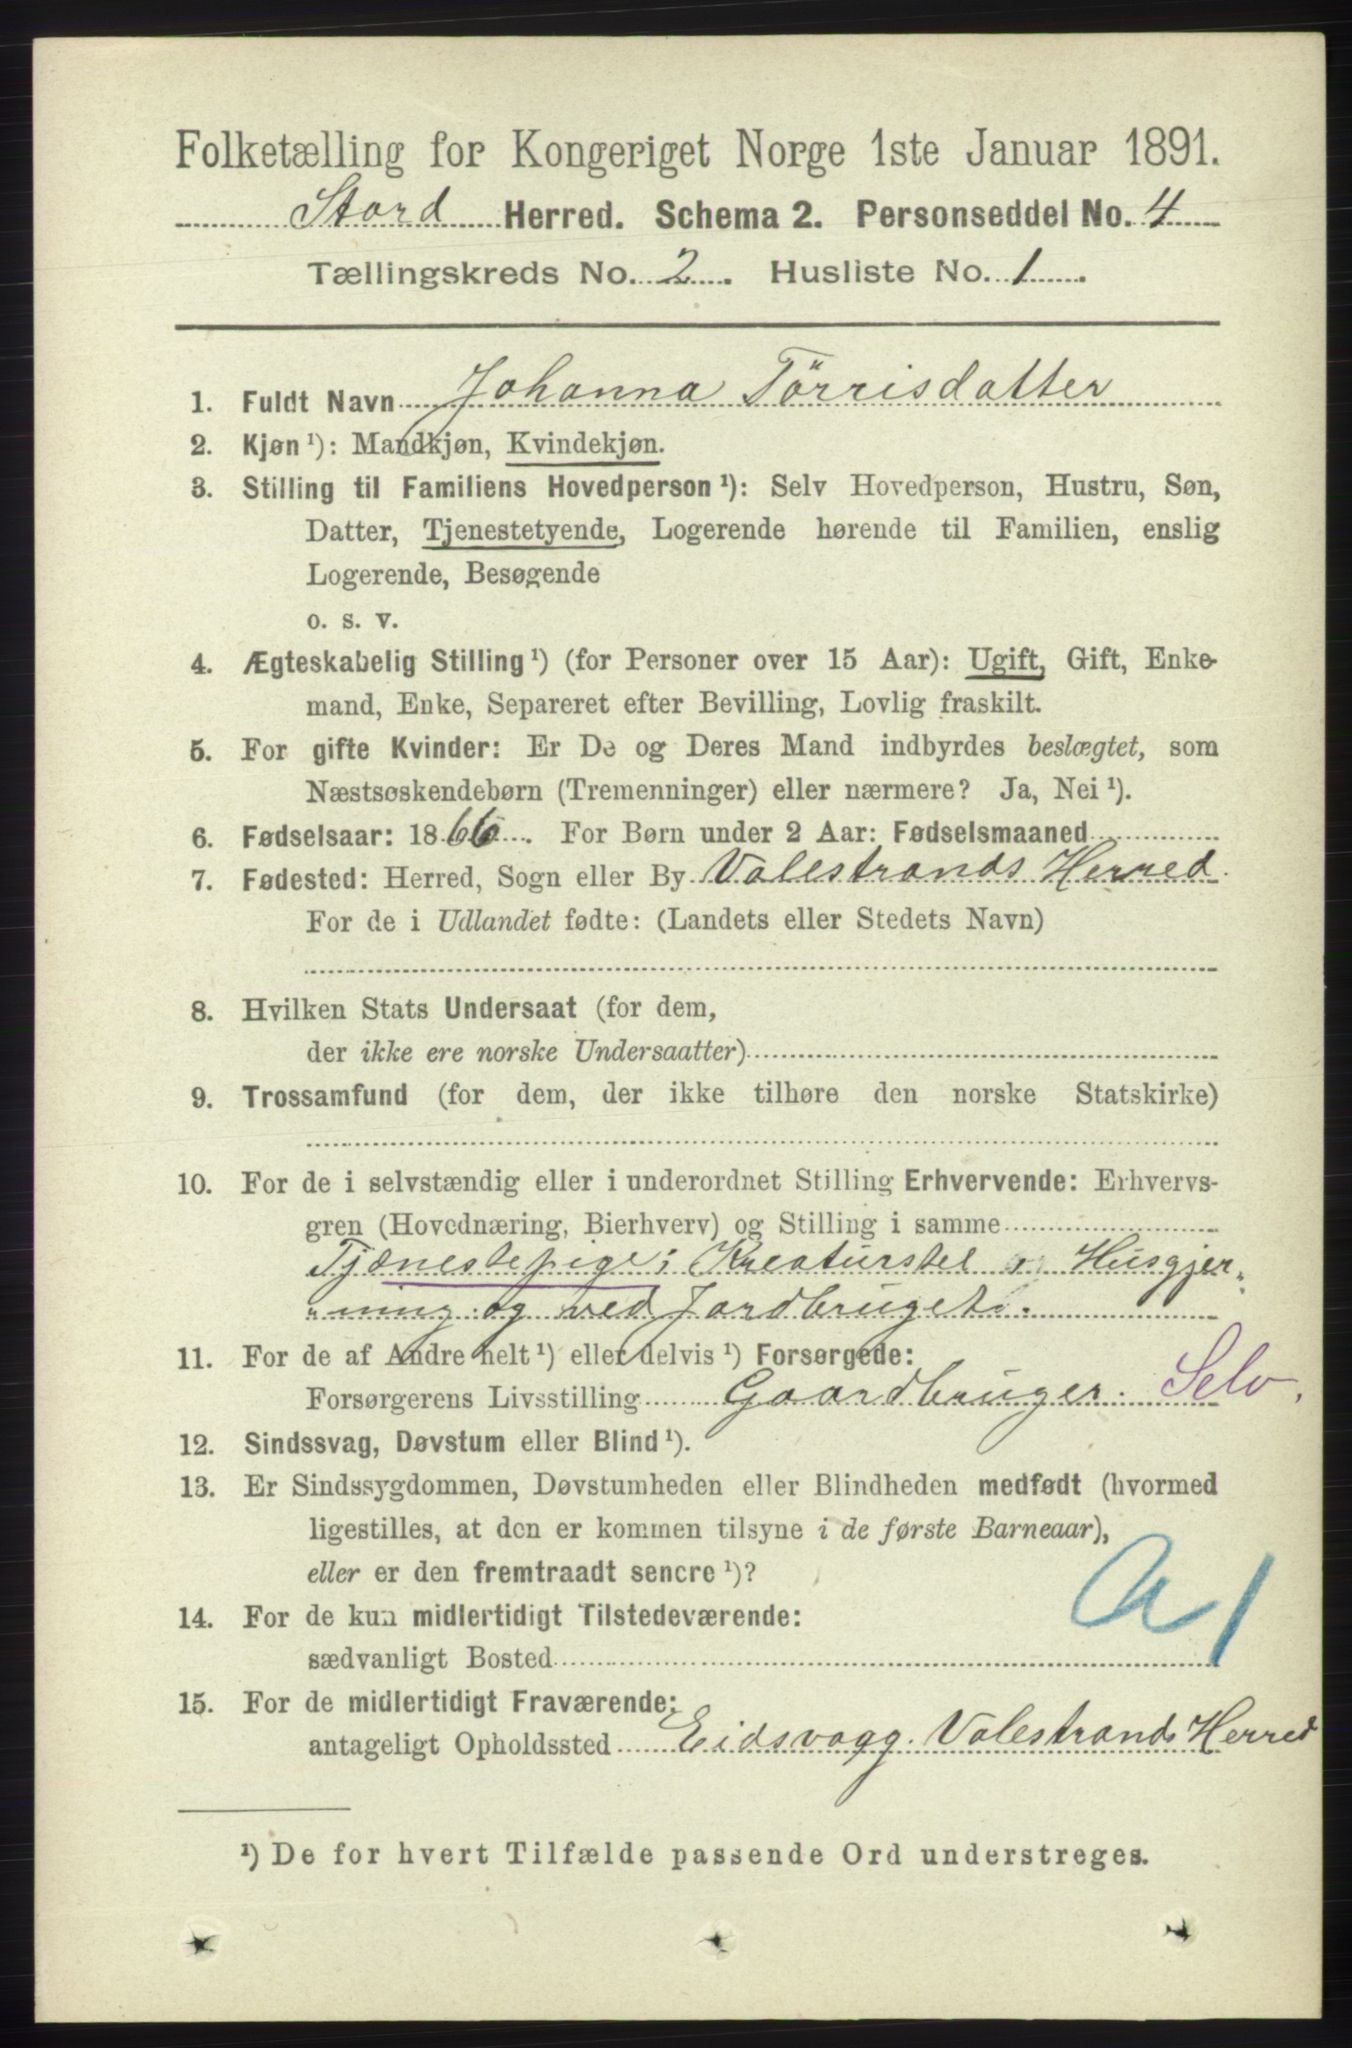 Folketælling for Kongeriget Norge 1ste Januar 1891.
Stord Herred. Schema 2. Personseddel No. 4
Tællingskreds No. 2. Husliste No. 1.
1. Fuldt Navn Johanna Törrisdatter
2. Kjøn¹): Mandkjøn, Kvindekjøn.
3. Stilling til Familiens Hovedperson¹): Selv Hovedperson, Hustru, Søn,
Datter, Tjenestetyende, Logerende hørende til Familien, enslig
Logerende, Besøgende
o. s. v.
4. Ægteskabelig Stilling¹) (for Personer over 15 Aar): Ugift, Gift, Enke-
mand, Enke, Separeret efter Bevilling, Lovlig fraskilt.
5. For gifte Kvinder: Er De og Deres Mand indbyrdes beslægtet, som
Næstsøskendebørn (Tremenninger) eller nærmere? Ja, Nei¹).
6. Fødselsaar: 1866. For Børn under 2 Aar: Fødselsmaaned
7. Fødested: Herred, Sogn eller By Valestrands Herred
For de i Udlandet fødte: (Landets eller Stedets Navn)
8. Hvilken Stats Undersaat (for dem,
der ikke ere norske Undersaatter)
9. Trossamfund (for dem, der ikke tilhøre den norske Statskirke)
10. For de i selvstændig eller i underordnet Stilling Erhvervende: Erhvervs-
gren (Hovednæring, Bierhverv) og Stilling i samme
Tjenestepige; Kreaturstel Husgjer„
„ning og ved Jordbruget.
11. For de af Andre helt¹) eller delvis¹) Forsørgede:
Forsørgerens Livsstilling Gaardbruger. Selv.
12. Sindssvag, Døvstum eller Blind¹).
13. Er Sindssygdommen, Døvstumheden eller Blindheden medfødt (hvormed
ligestilles, at den er kommen tilsyne i de første Barneaar),
eller er den fremtraadt senere¹)?
14. For de kun midlertidigt Tilstedeværende:
sædvanligt Bosted
15. For de midlertidigt Fraværende:
antageligt Opholdssted Eidsvagg. Valestrands Herred
¹) De for hvert Tilfælde passende Ord understreges.